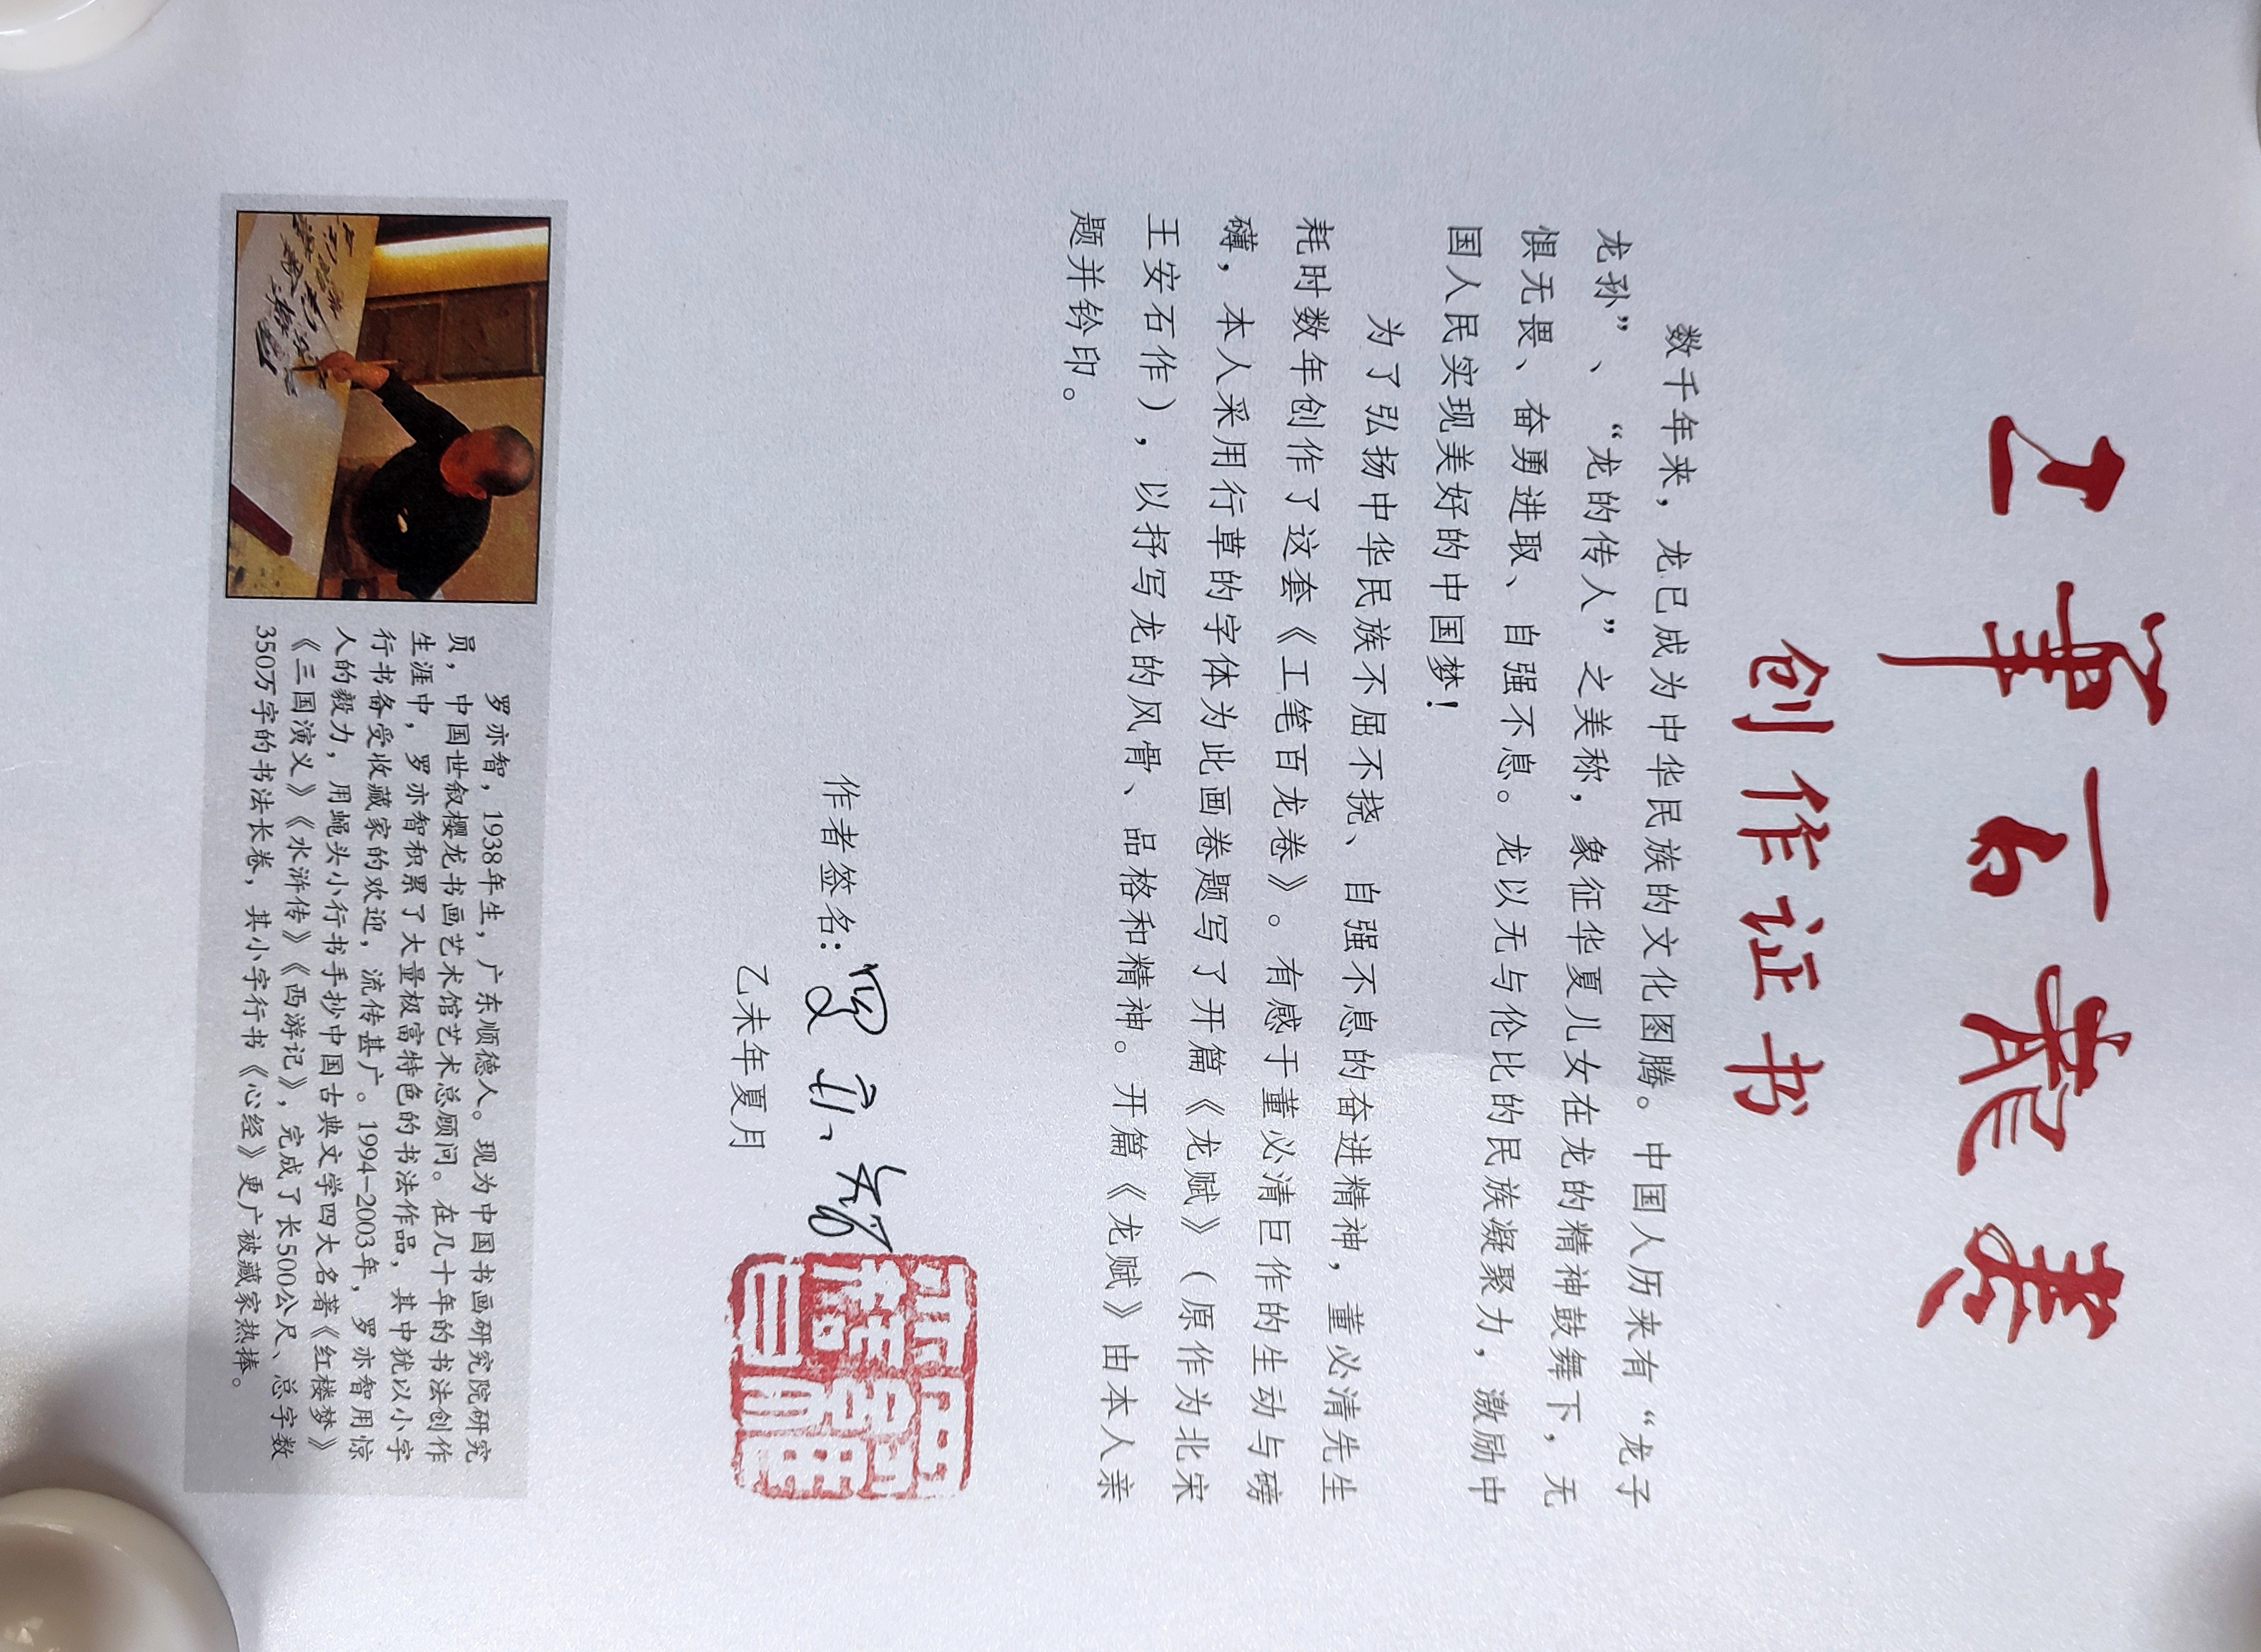 工笔百龙卷
创作证书
数千年来，龙已成为中华民族的文化图腾。中国人历来有“龙子
龙孙”、“龙的传人”之美称，象征华夏儿女在龙的精神鼓舞下，无
惧无畏、奋勇进取、自强不息。龙以无与伦比的民族凝聚力，激励中
国人民实现美好的中国梦！
为了弘扬中华民族不屈不挠、自强不息的奋进精神，董必清先生
耗时数年创作了这套《工笔百龙卷》。有感于董必清巨作的生动与磅
礴，本人采用行草的字体为此画卷题写了开篇《龙赋》（原作为北宋
王安石作），以抒写龙的风骨、品格和精神。开篇《龙赋》由本人亲
题并钤印。
作者签名：罗亦智
乙未年夏月
罗亦智，1938年生，广东顺德人。现为中国书画研究院研究
员，中国世叙樱龙书画艺术馆艺术总顾问。在几十年的书法创作
生涯中，罗亦智积累了大量极富特色的书法作品，其中犹以小字
行书备受收藏家的欢迎，流传甚广。1994-2003年，罗亦智用惊
人的毅力，用蝇头小行书手抄中国古典文学四大名著《红楼梦》
《三国演义》《水浒传》《西游记》，完成了长500公尺、总字数
350万字的书法长卷，其小字行书《心经》更广被藏家热捧。